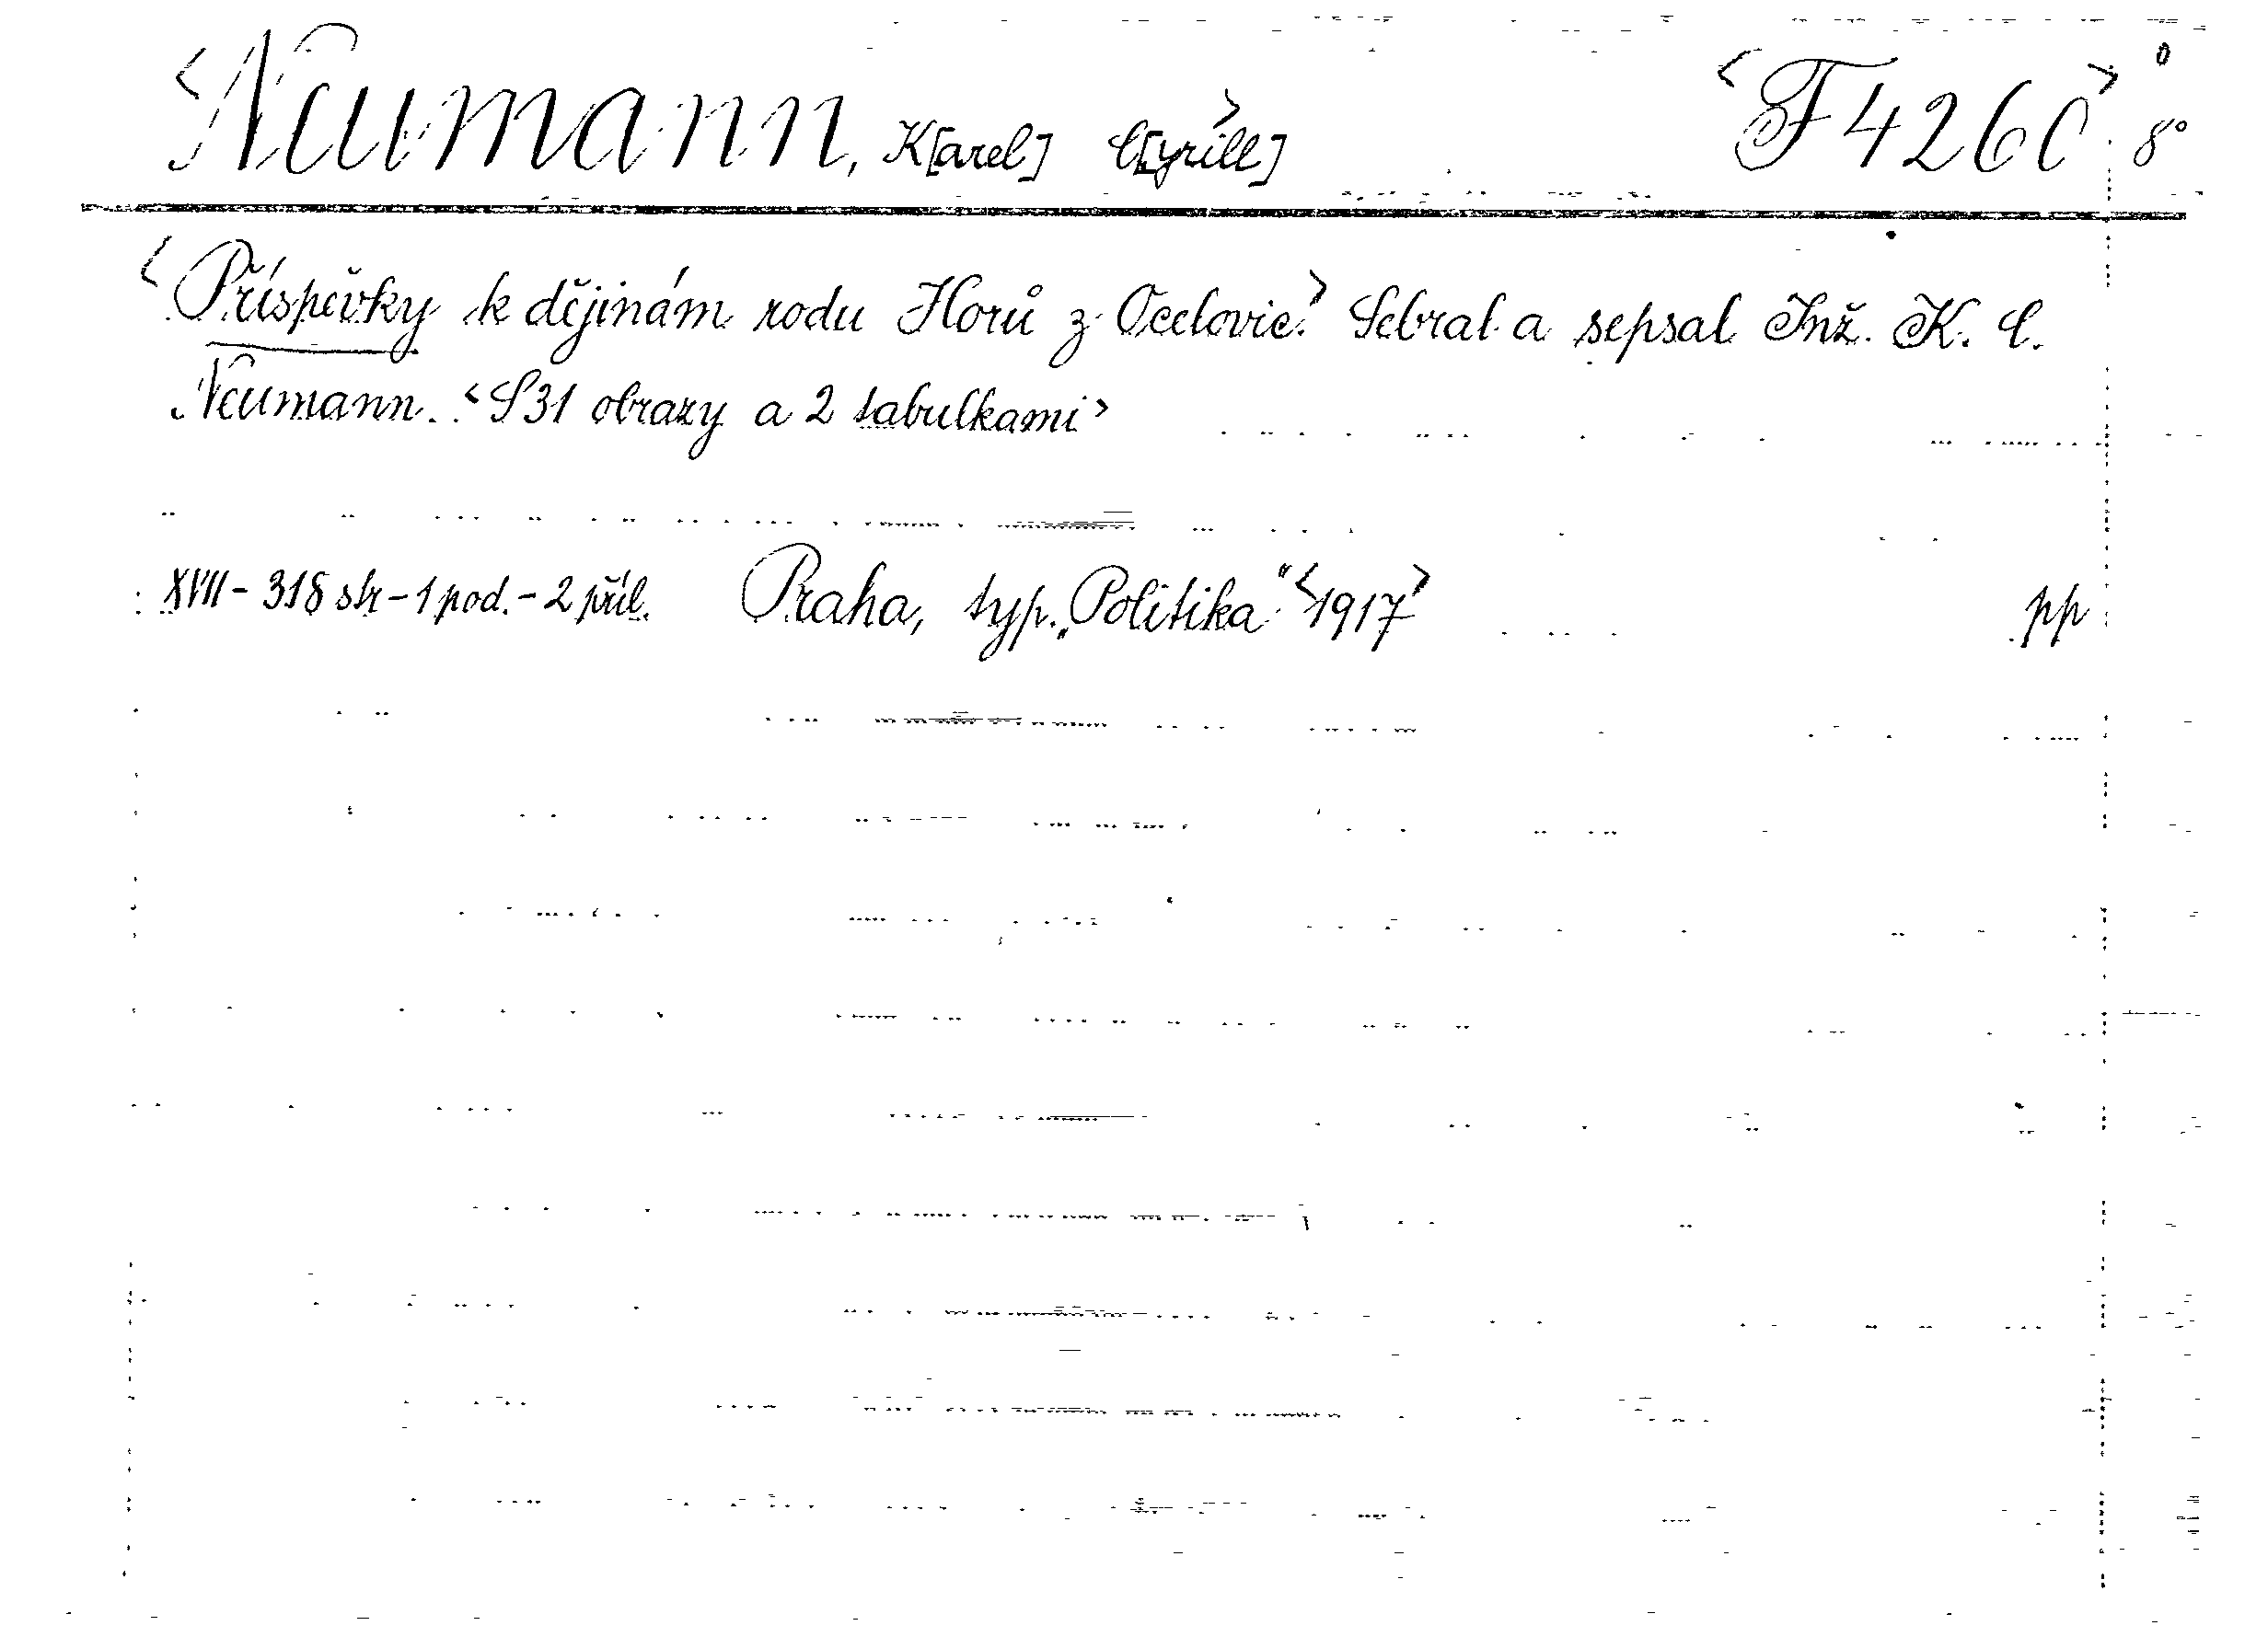 <Neumann, K[arel] C[yrill]> <F 4260> 8°
<Příspěvky k dějinám rodu Horů z Ocelovic.> Sebral a sepsal Inž. K. C.
Neumann. <S 31 obrazy a 2 tabulkami>
XVII - 318 str - 1 pod. - 2 příl. Praha, typ. „Politika" <1917> pp